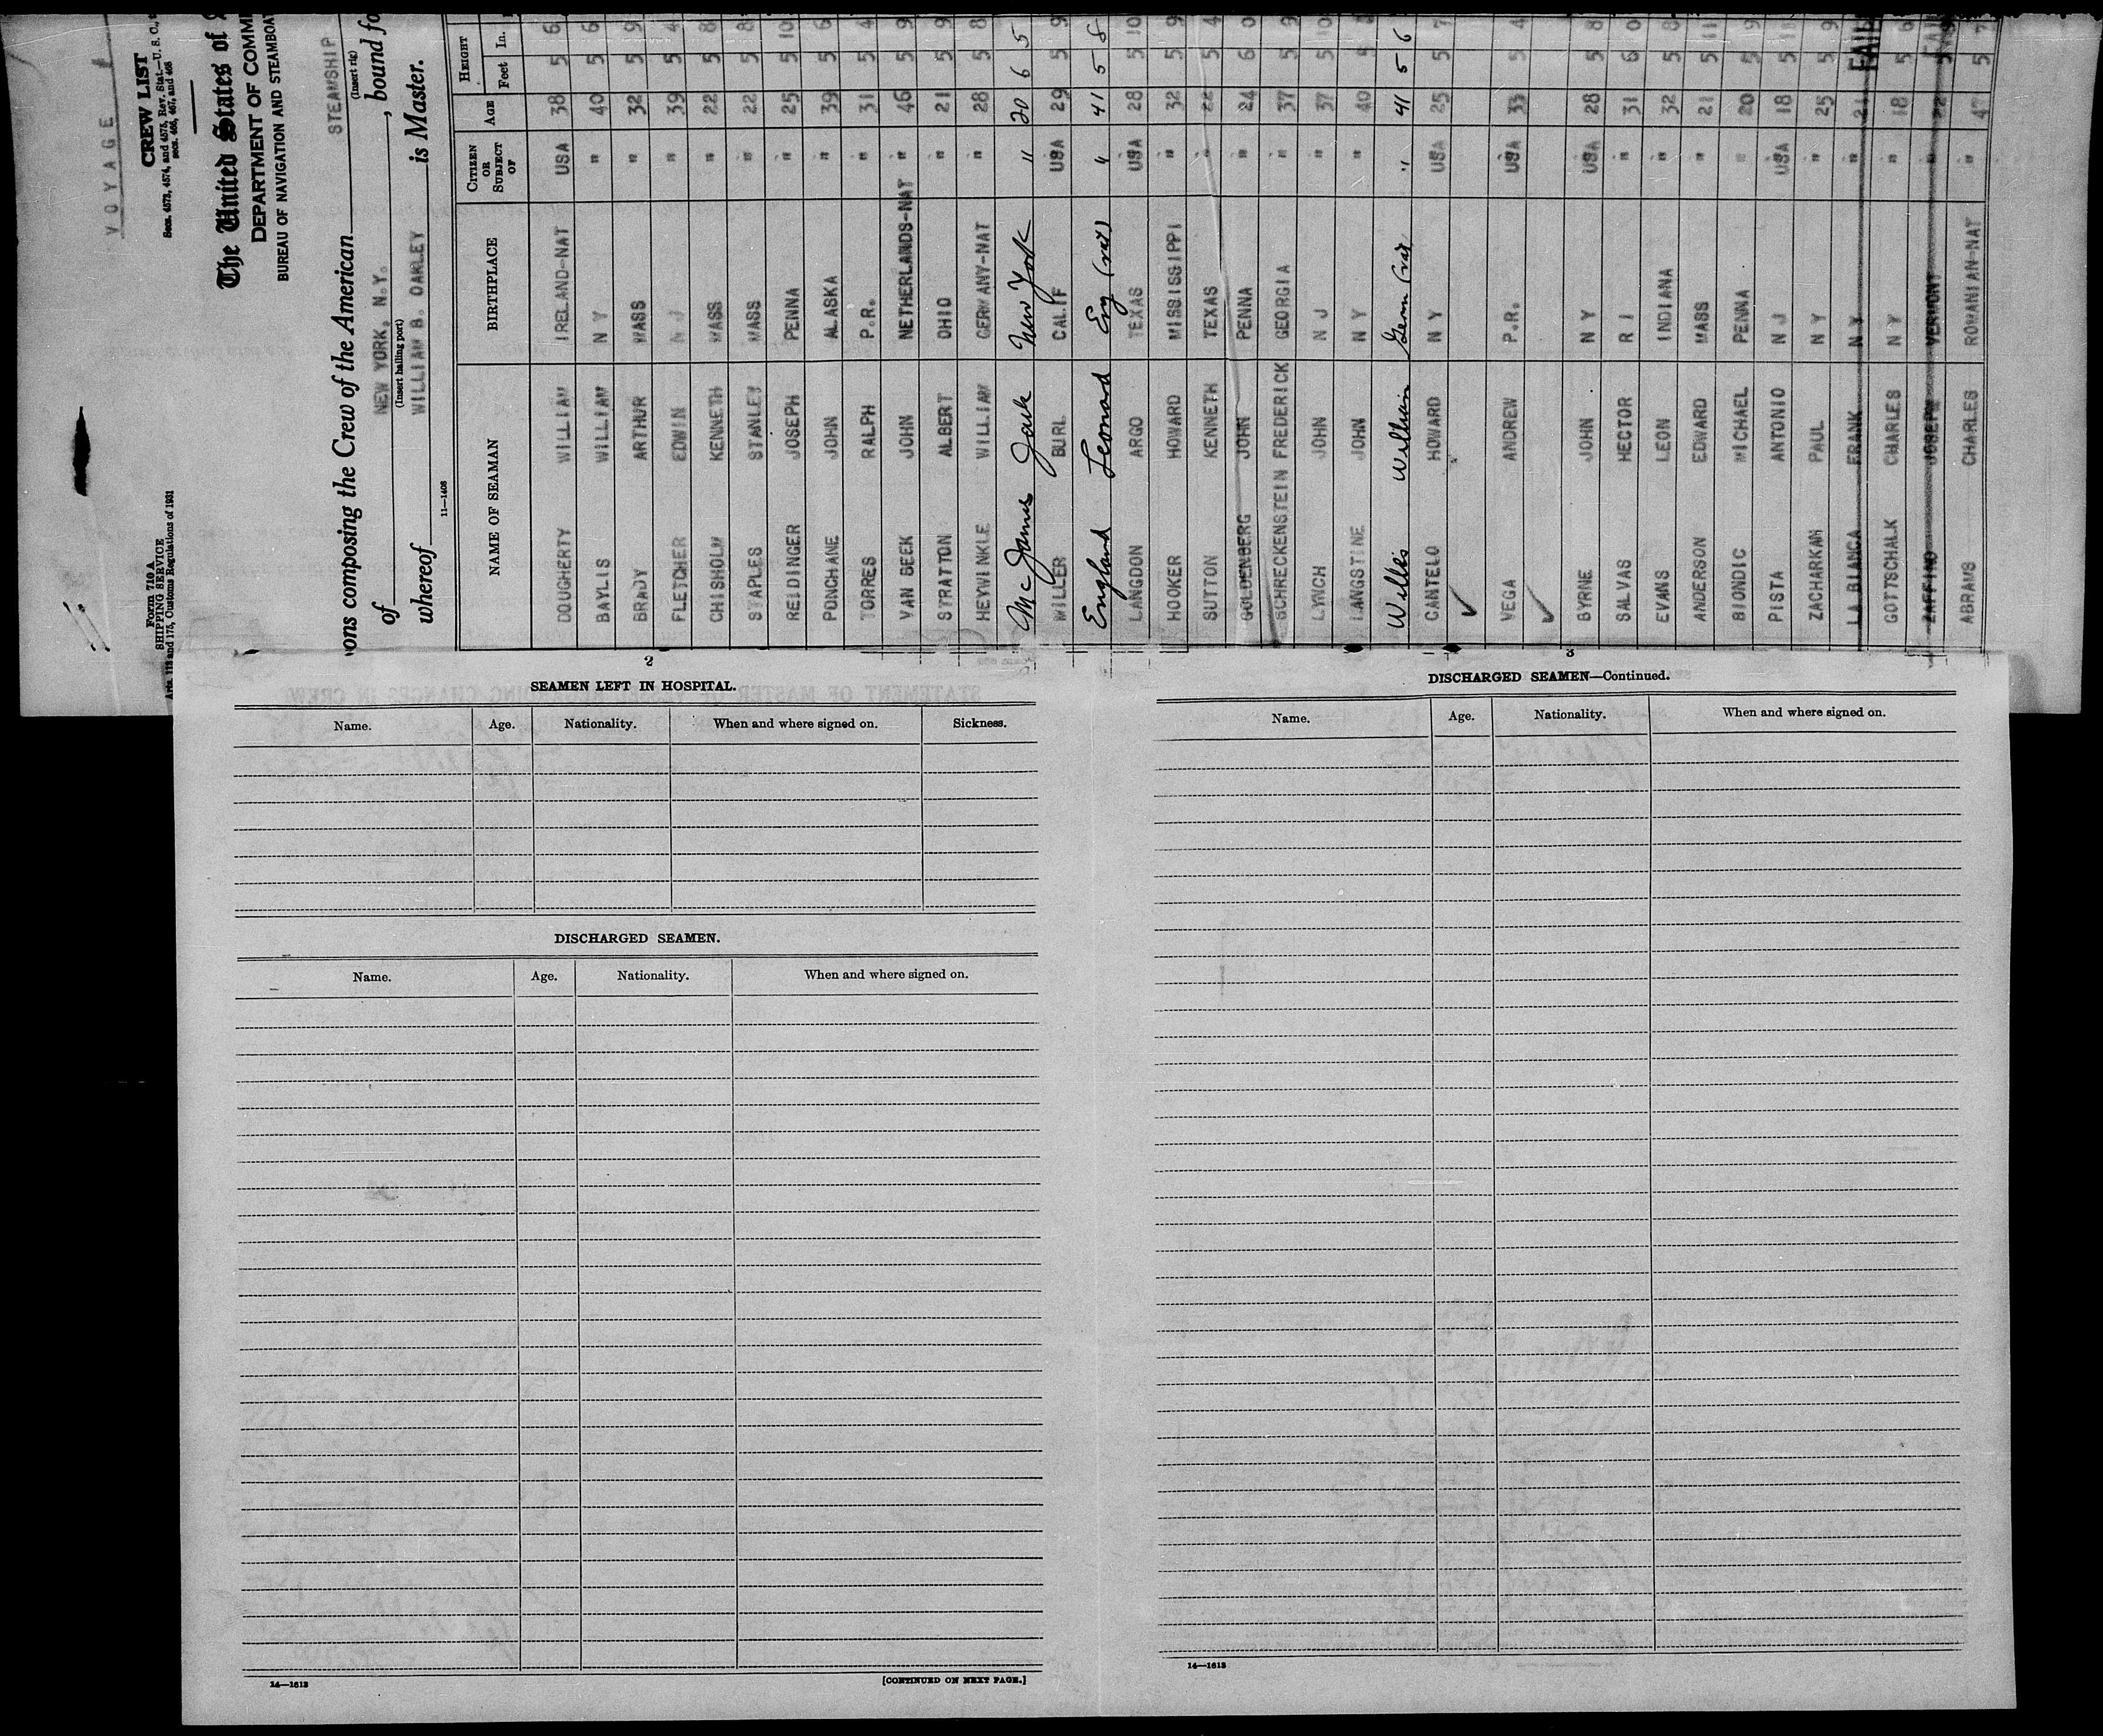 VOYAGE #
Form 710 A
SHIPPING SERVICE
Arts. 118 and 175, Customs Regulations of 1931
CREW LIST
Secs. 4573, 4574, and 4575, Rev. Stat.—U. S. C.,
secs. 466, 467, and 468
The United States of
DEPARTMENT OF COMM
BUREAU OF NAVIGATION AND STEAMBOAT
ons composing the Crew of the American STEAMSHIP
(Insert rig)
of NEW YORK, N.Y. , bound fo
(Insert hailing port)
whereof WILLIAM B. OAKLEY is Master.
11—1408
NAME OF SEAMAN BIRTHPLACE CITIZEN OR SUBJECT OF Age HEIGHT Feet In.
DOUGHERTY WILLIAM IRELAND-NAT USA 38 5 6
BAYLIS WILLIAM N Y " 40 5 6
BRADY ARTHUR MASS " 32 5 9
FLETCHER EDWIN N J " 39 5 4
CHISHOLM KENNETH MASS " 22 5 8
STAPLES STANLEY MASS " 22 5 8
REIDINGER JOSEPH PENNA " 25 5 10
PONCHANE JOHN ALASKA " 39 5 6
TORRES RALPH P.R. " 31 5 4
VAN BEEK JOHN NETHERLANDS-NAT " 46 5 9
STRATTON ALBERT OHIO " 21 5 9
HEYWINKLE WILLIAM GERMANY-NAT " 28 5 8
McJames Jack New York " 20 6 5
MILLER BURL CALIF USA 29 5 9
England Leonard Eng (nat) " 41 5 8
LANGDON ARGO TEXAS USA 28 5 10
HOOKER HOWARD MISSISSIPPI " 32 5 9
SUTTON KENNETH TEXAS " 22 5 4
GOLDENBERG JOHN PENNA " 24 6 0
SCHRECKENSTEIN FREDERICK GEORGIA " 37 5 9
LYNCH JOHN N J " 37 5 10
LANGSTINE JOHN N Y " 40 5
Willis William Germ (nat " 41 5 6
CANTELO HOWARD N Y USA 25 5 7
VEGA ANDREW P.R. USA 33 5 4
BYRNE JOHN N Y USA 28 5 8
SALVAS HECTOR R I " 31 6 0
EVANS LEON INDIANA " 32 5 8
ANDERSON EDWARD MASS " 21 5 11
BIONDIC MICHAEL PENNA " 20 5 9
PISTA ANTONIO N J USA 18 5 11
ZACHARKAN PAUL N Y " 25 5 9
LA BIANCA FRANK N Y " 21 FAIL
GOTTSCHALK CHARLES N Y " 18 5 6
ZAFFINO JOSEPH VERMONT " 22 FAIL
ABRAMS CHARLES ROMANIAN NAT " 47 5 7
2
SEAMEN LEFT IN HOSPITAL.
Name. Age. Nationality. When and where signed on. Sickness.
DISCHARGED SEAMEN.
Name. Age. Nationality. When and where signed on.
14—1613
[CONTINUED ON NEXT PAGE.]
3
DISCHARGED SEAMEN—Continued.
Name. Age. Nationality. When and where signed on.
14—1613